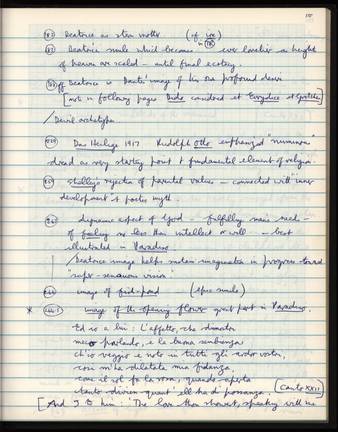 Beatrice as stern mother (cf
Beatrice smile which becomes ever lovelier as heights
of heaven are scaled – until final ecstasy.
ff Beatrice is Dante's image of his own profound desire
[note in following pages considered et Eurydice et
Devil archetype
Das Heilige 1917 Rudolph Otto emphasized "numinous"
dread as very starting point & fundamental element of religion.
Shelleys rejection of parental values – connected with inner
development & poetic myth
aspect of God – fulfilling man's need –
of feeling no less than intellect or will – best
illustrated in Paradiso
Beatrice image helps sustain imagination in progress toward
"super-sensuous vision"
image of fish-pond (epic simile)
* image of the opening flower – great part in Paradiso.
Ed io a lui: L'affetto, che dimostri
meco parlando, e la buona sembianza
ch'io veggio e noto in tutti gli ardor vostri,
così m'ha dilatata mia fidanza,
come il sol fa la rosa, quando aperta
tanto divien quant' ell' ha di possanza. (Canto XXII)
[And I to him: 'The love thou showest, speaking with me